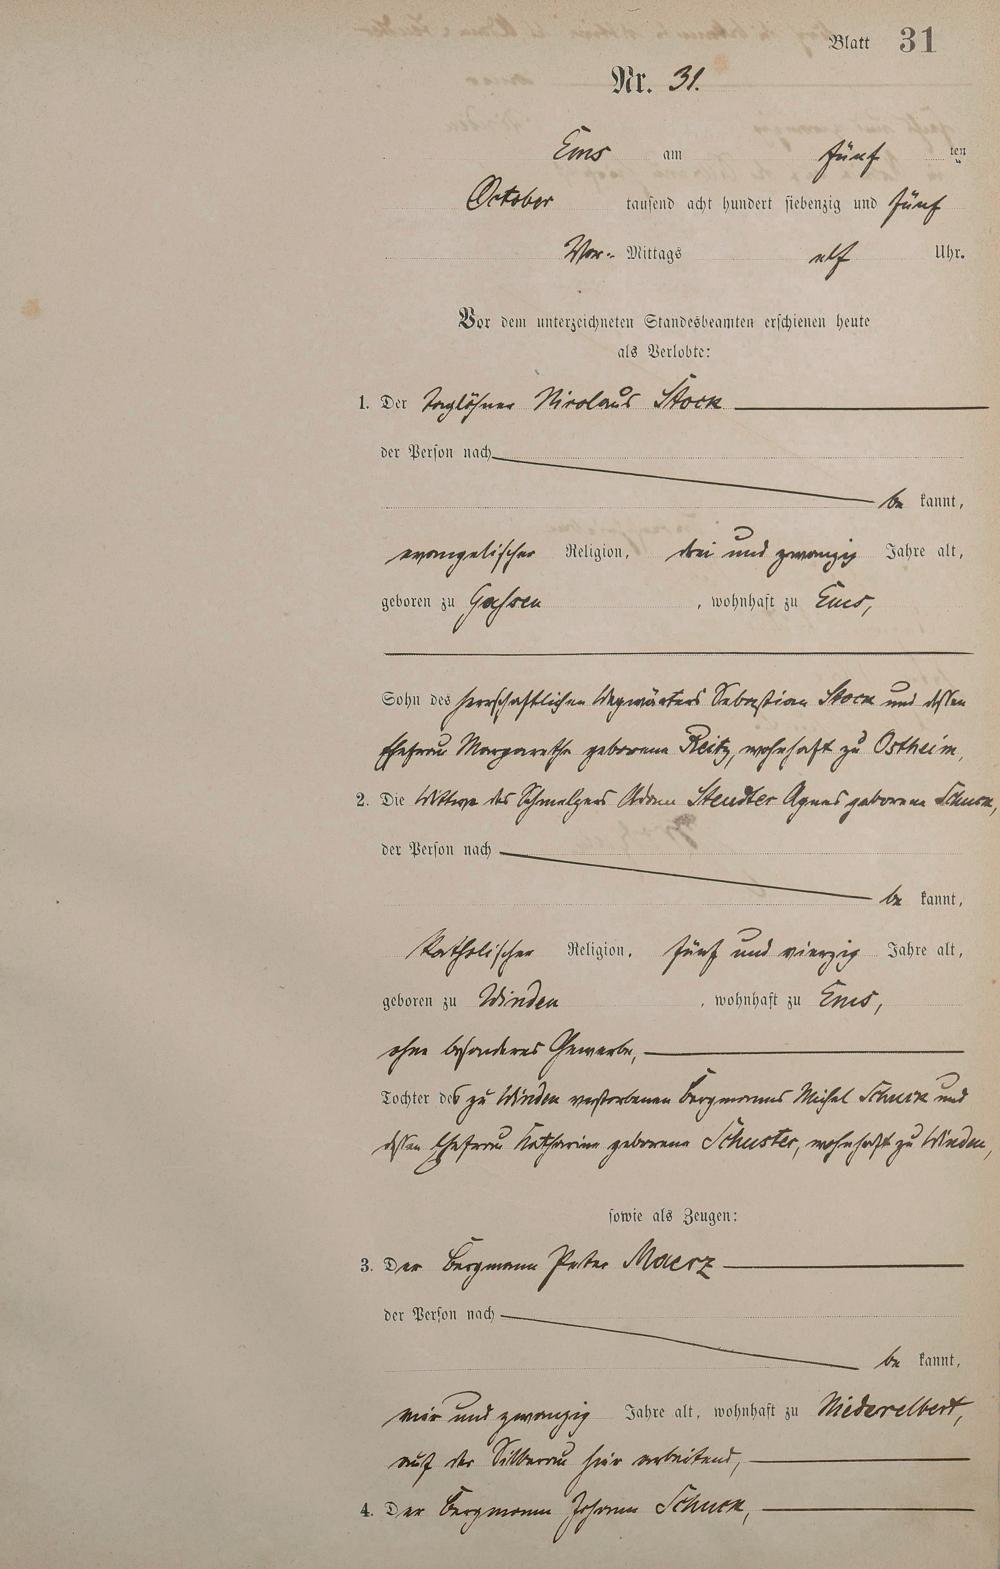 Blatt 31
Nr. 31.
Ems am fünf ten
October tausend acht hundert siebenzig und fünf
Vor- Mittags elf Uhr.
Vor dem unterzeichneten Standesbeamten erschienen heute
als Verlobte:
1. Der Taglöhner Nicolaus Stock
der Person nach
be kannt,
evangelischer Religion, drei und zwanzig Jahre alt,
geboren zu , wohnhaft zu Ems,
Sohn des herrschaftlichen Wegwärters Sebastian Stock und dessen
Ehefrau Margarethe geborene Reitz, wohnhaft zu Ostheim,
2. Die Wittwe des Schmelzers Adam Steudter Agnes geborene Schuck,
der Person nach
be kannt,
katholischer Religion, fünf und vierzig Jahre alt,
geboren zu Winden , wohnhaft zu Ems,
ohne besonderes Gewerbe,
Tochter des zu Winden verstorbenen Bergmanns Michel Schuck und
dessen Ehefrau Katharina geborene Schuster, wohnhaft zu Winden,
sowie als Zeugen:
3. Der Bergmann Peter Maerz
der Person nach
be kannt,
vier und zwanzig Jahre alt, wohnhaft zu Niederelbert,
auf der Silberau hier arbeitend,
4. Der Bergmann Johann Schuck,